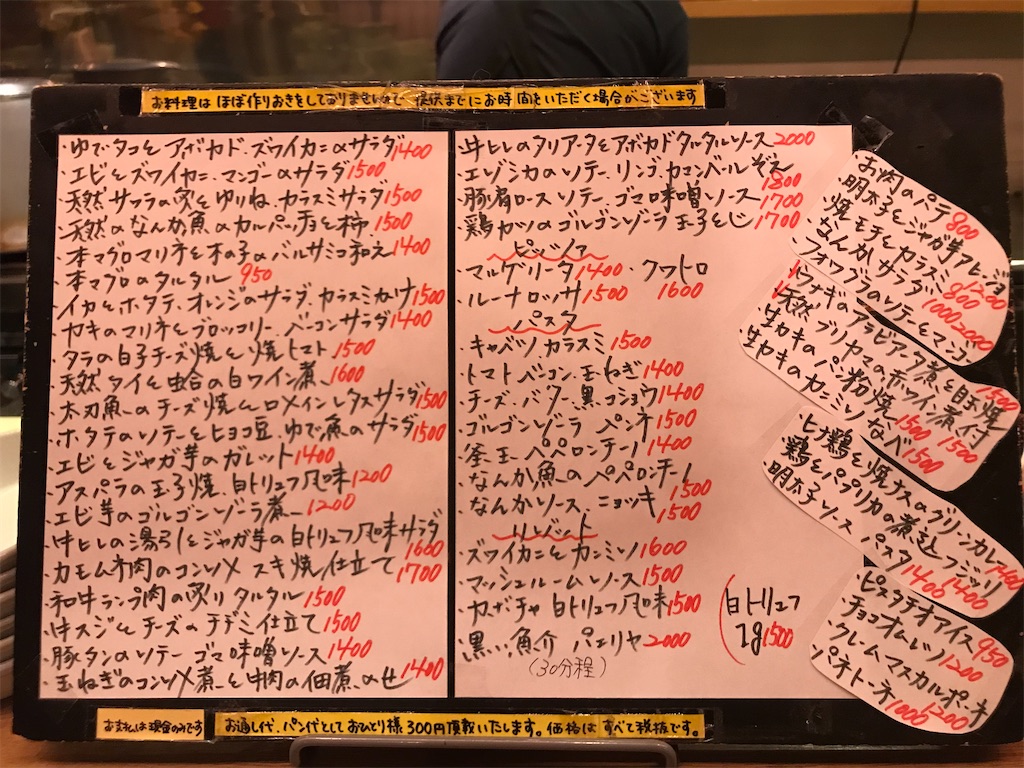 お料理は ほぼ作りおきをしておりませんので 提供までにお時間をいただく場合がございます
・ゆでタコとアボカド、ズワイカニのサラダ1400
・エビとズワイカニ、マンゴーのサラダ1500
・天然サワラの炙とゆりね、カラスミサラダ1500
・天然のなんか魚のカルパッチョと柿1500
・本マグロマリネと木の子のバルサミコ和え1400
・本マグロのタルタル 950
・イカとホタテ、オレンジのサラダ、カラスミかけ1500
・カキのマリネとブロッコリー、ベーコンサラダ1400
・タラの白子チーズ焼と焼トマト 1500
・天然タイと蛤の白ワイン煮 1600
・太刀魚のチーズ焼とロメインレタスサラダ1500
・ホタテのソテーとヒヨコ豆、ゆで魚のサラダ1500
・エビとジャガ芋のガレット1400
・アスパラの玉子焼、白トリュフ風味1200
・エビ芋のゴルゴンゾーラ煮 1200
・牛ヒレの湯引とジャガ芋の白トリュフ風味サラダ1600
・カモムネ肉のコンソメ スキ焼仕立て1700
・和牛ランプ肉の炙りタルタル1500
・牛スジとチーズのチヂミ仕立て1500
・豚タンのソテー ゴマ味噌ソース1400
・玉ねぎのコンソメ煮と牛肉の佃煮のせ 1400
・牛ヒレのタリアータとアボカドタルタルソース2000
・エゾシカのソテー、リンゴ、カマンベールぞえ1800
・豚肩ロースソテー、ゴマ味噌ソース1700
・鶏カツのゴルゴンゾラ玉子とじ1700
ピッツァ
・マルゲリータ1400 ・クワトロ1600
・ルーナロッサ1500
パスタ
・キャベツ、カラスミ1500
・トマト、ベーコン、玉ねぎ1400
・チーズ、バター、黒コショウ1400
・ゴルゴンゾラ ペンネ1500
・釜玉、ペペロンチーノ1400
・なんか魚のペペロンチーノ1500
・なんかソース、ニョッキ1500
リゾット
・ズワイカニとカンミソ1600
・マッシュルームソース1500
・カボチャ 白トリュフ風味1500
・黒い魚介 パエリヤ2000
(30分程)
白トリュフ
1g1500
・お肉のパテ800
・明太子とジャガ芋アヒージョ1200
・焼モチとカラスミ800
・なんかサラダ1000
・フォワグラのソテーとマンゴ2000
・ウナギのアラビアータ煮と目玉焼1500
・天然ブリヤマの赤ワイン煮付1500
・生カキのパン粉焼1500
・生カキのカンミソなべ1500
・ヒナ鶏と焼ナスのグリーンカレー1400
・鶏とパプリカの煮込フジッリ1400
・明太子ソースパスタ1400
・ピスタチオアイス950
・チョコオムレツ1200
・クレームマスカルポーネ1200
・パネトーネ1000
お支払は現金のみです
お通し代、パン代としておひとり様300円頂戴いたします。価格はすべて税抜です。